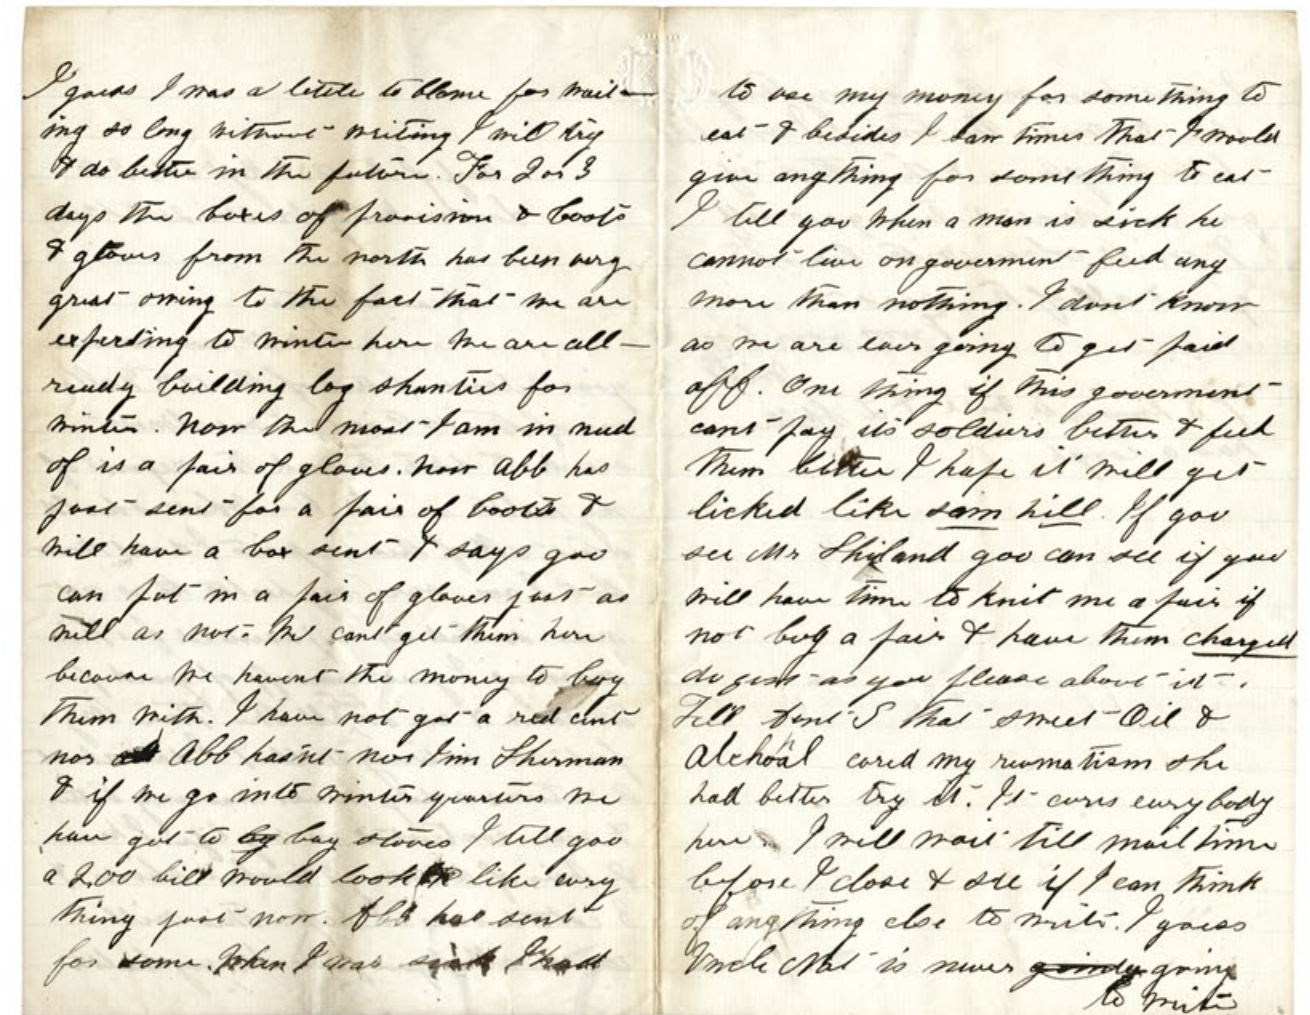 I guess I was a little to blame for wait-
ing so long without writing I will try
& do better in the future. For 2 or 3
days the boxes of provision & boots
& gloves from the north has been very
great owing to the fact that we are
experting to winter here We are all-
ready building log shanties for
winter. Now the most I am in need
of is a pair of gloves. Now Abb has
just sent for a pair of boots &
will have a box sent & says you
can put in a pair of gloves just as
well as not. We cant get them here
because we havent the money to buy
them with. I have not got a red cent
nor Abb hasnt nor Jim Sherman
& if we go into winter quarters we
have got to by buy stoves I tell you
a 2.00 bill would look like every
thing just now. Abb has sent
for some. When I was sick I had
to use my money for something to
eat & besides I saw times that I would
give anything for something to eat
I tell you when a man is sick he
cannot live on goverment feed any
more than nothing. I dont know
as we are ever going to get paid
off. One thing if this goverment
cant pay its soldiers better & feed
them better I hope it will get
licked like sam hill. If you
see Mr Shiland you can see if you
will have time to knit me a pair if
not buy a pair & have them charged
do just as you please about it.
Tell Aunt S that sweet Oil &
Alchoal cured my reumatism she
had better try it. It cures everybody
here. I will wait till mail time
before I close & see if I can think
of anything else to write. I guess
Uncle Nat is never going
to write